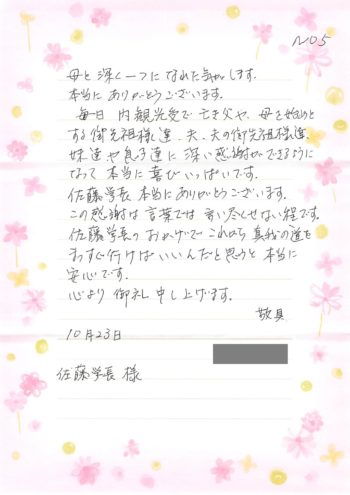 NO5
母と深く一つになれた気がします。
本当にありがとうございます。
毎日 内観光受で 亡き父や、母を始めと
する御先祖様達、夫、夫の御先祖様達、
妹達や息子達に 深い感謝ができるように
なって 本当に喜びいっぱいです。
佐藤学長 本当にありがとうございます。
この感謝は言葉では言い尽くせない程です。
佐藤学長のおかげで これから 真我の道を
まっすぐ行けばいいんだと思うと本当に
安心です。
心より 御礼 申し上げます。
敬具
10月23日
佐藤学長 様